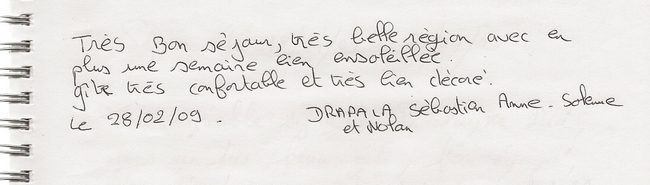 Très Bon séjour, très belle région avec en
plus une semaine bien ensoleillée.
gîte très confortable et très bien décoré.
Le 28/02/09. DRAPALA Sébastian Anne-Solenne
et Nolan